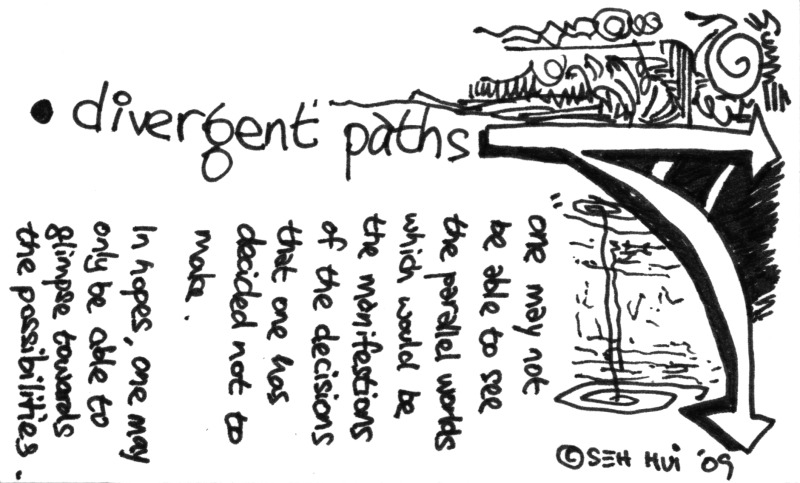 • divergent paths
" one may not
be able to see
the parallel worlds
which would be
the manifestions
of the decisions
that one has
decided not to
make .
In hopes, one may
only be able to
glimpse towards
the possibilities .
© SEH HUI '09